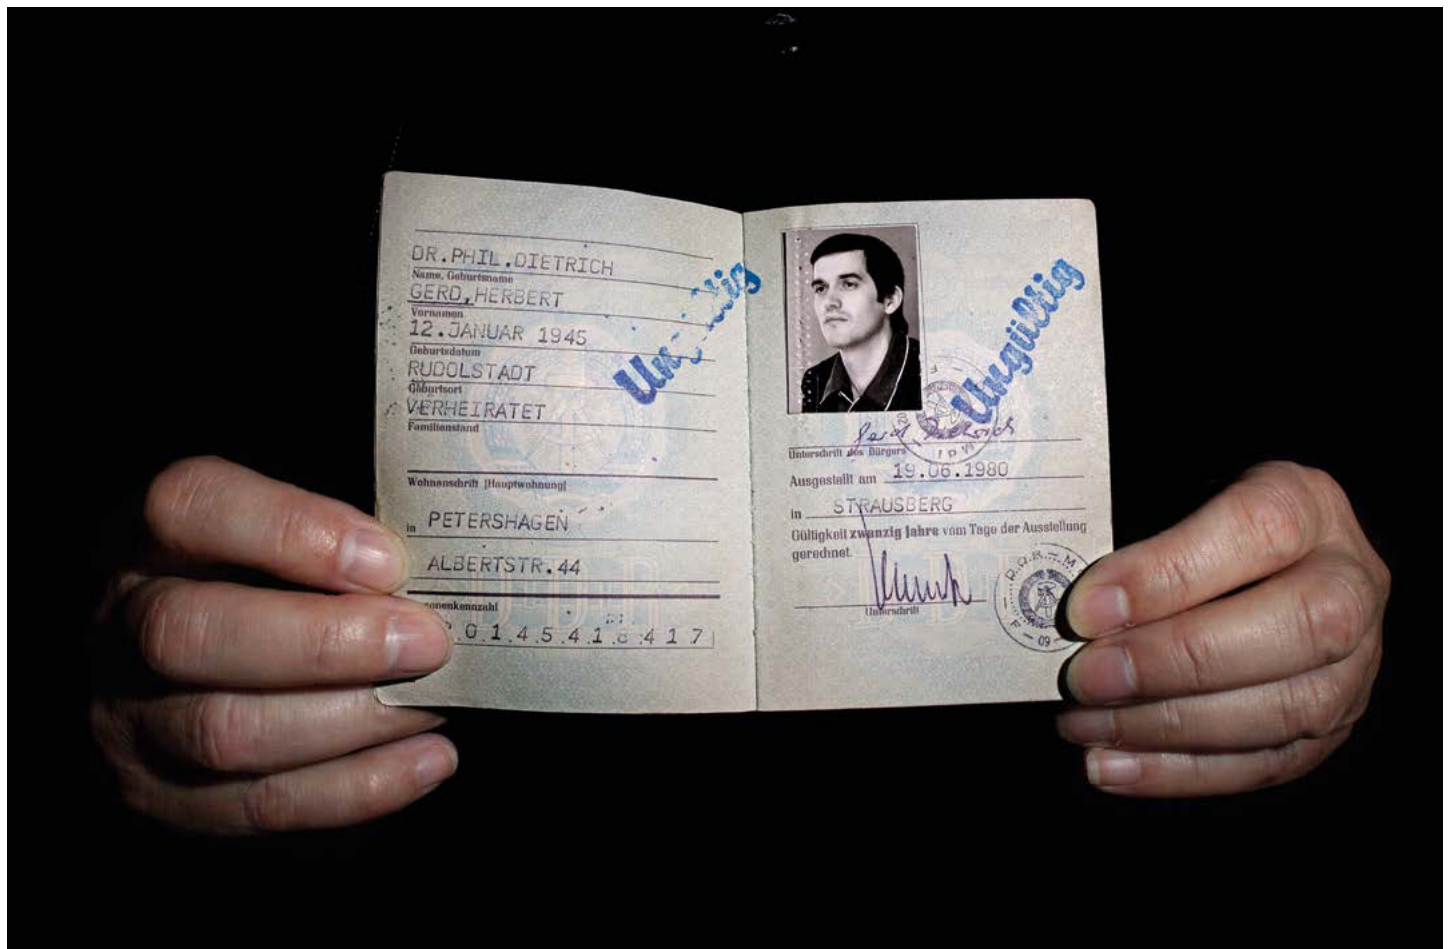 DR.PHIL.DIETRICH
Name, Geburtsname
GERD, HERBERT
Vornamen
12.JANUAR 1945
Geburtsdatum
RUDOLSTADT
Geburtsort
VERHEIRATET
Familienstand
Wohnanschrift [Hauptwohnung]
in PETERSHAGEN
ALBERTSTR.44
DDR
Ungültig
Unterschrift des Bürgers
Ausgestellt am 19.06.1980
in STRAUSBERG
Gültigkeit zwanzig Jahre vom Tage der Ausstellung
gerechnet.
Unterschrift
09